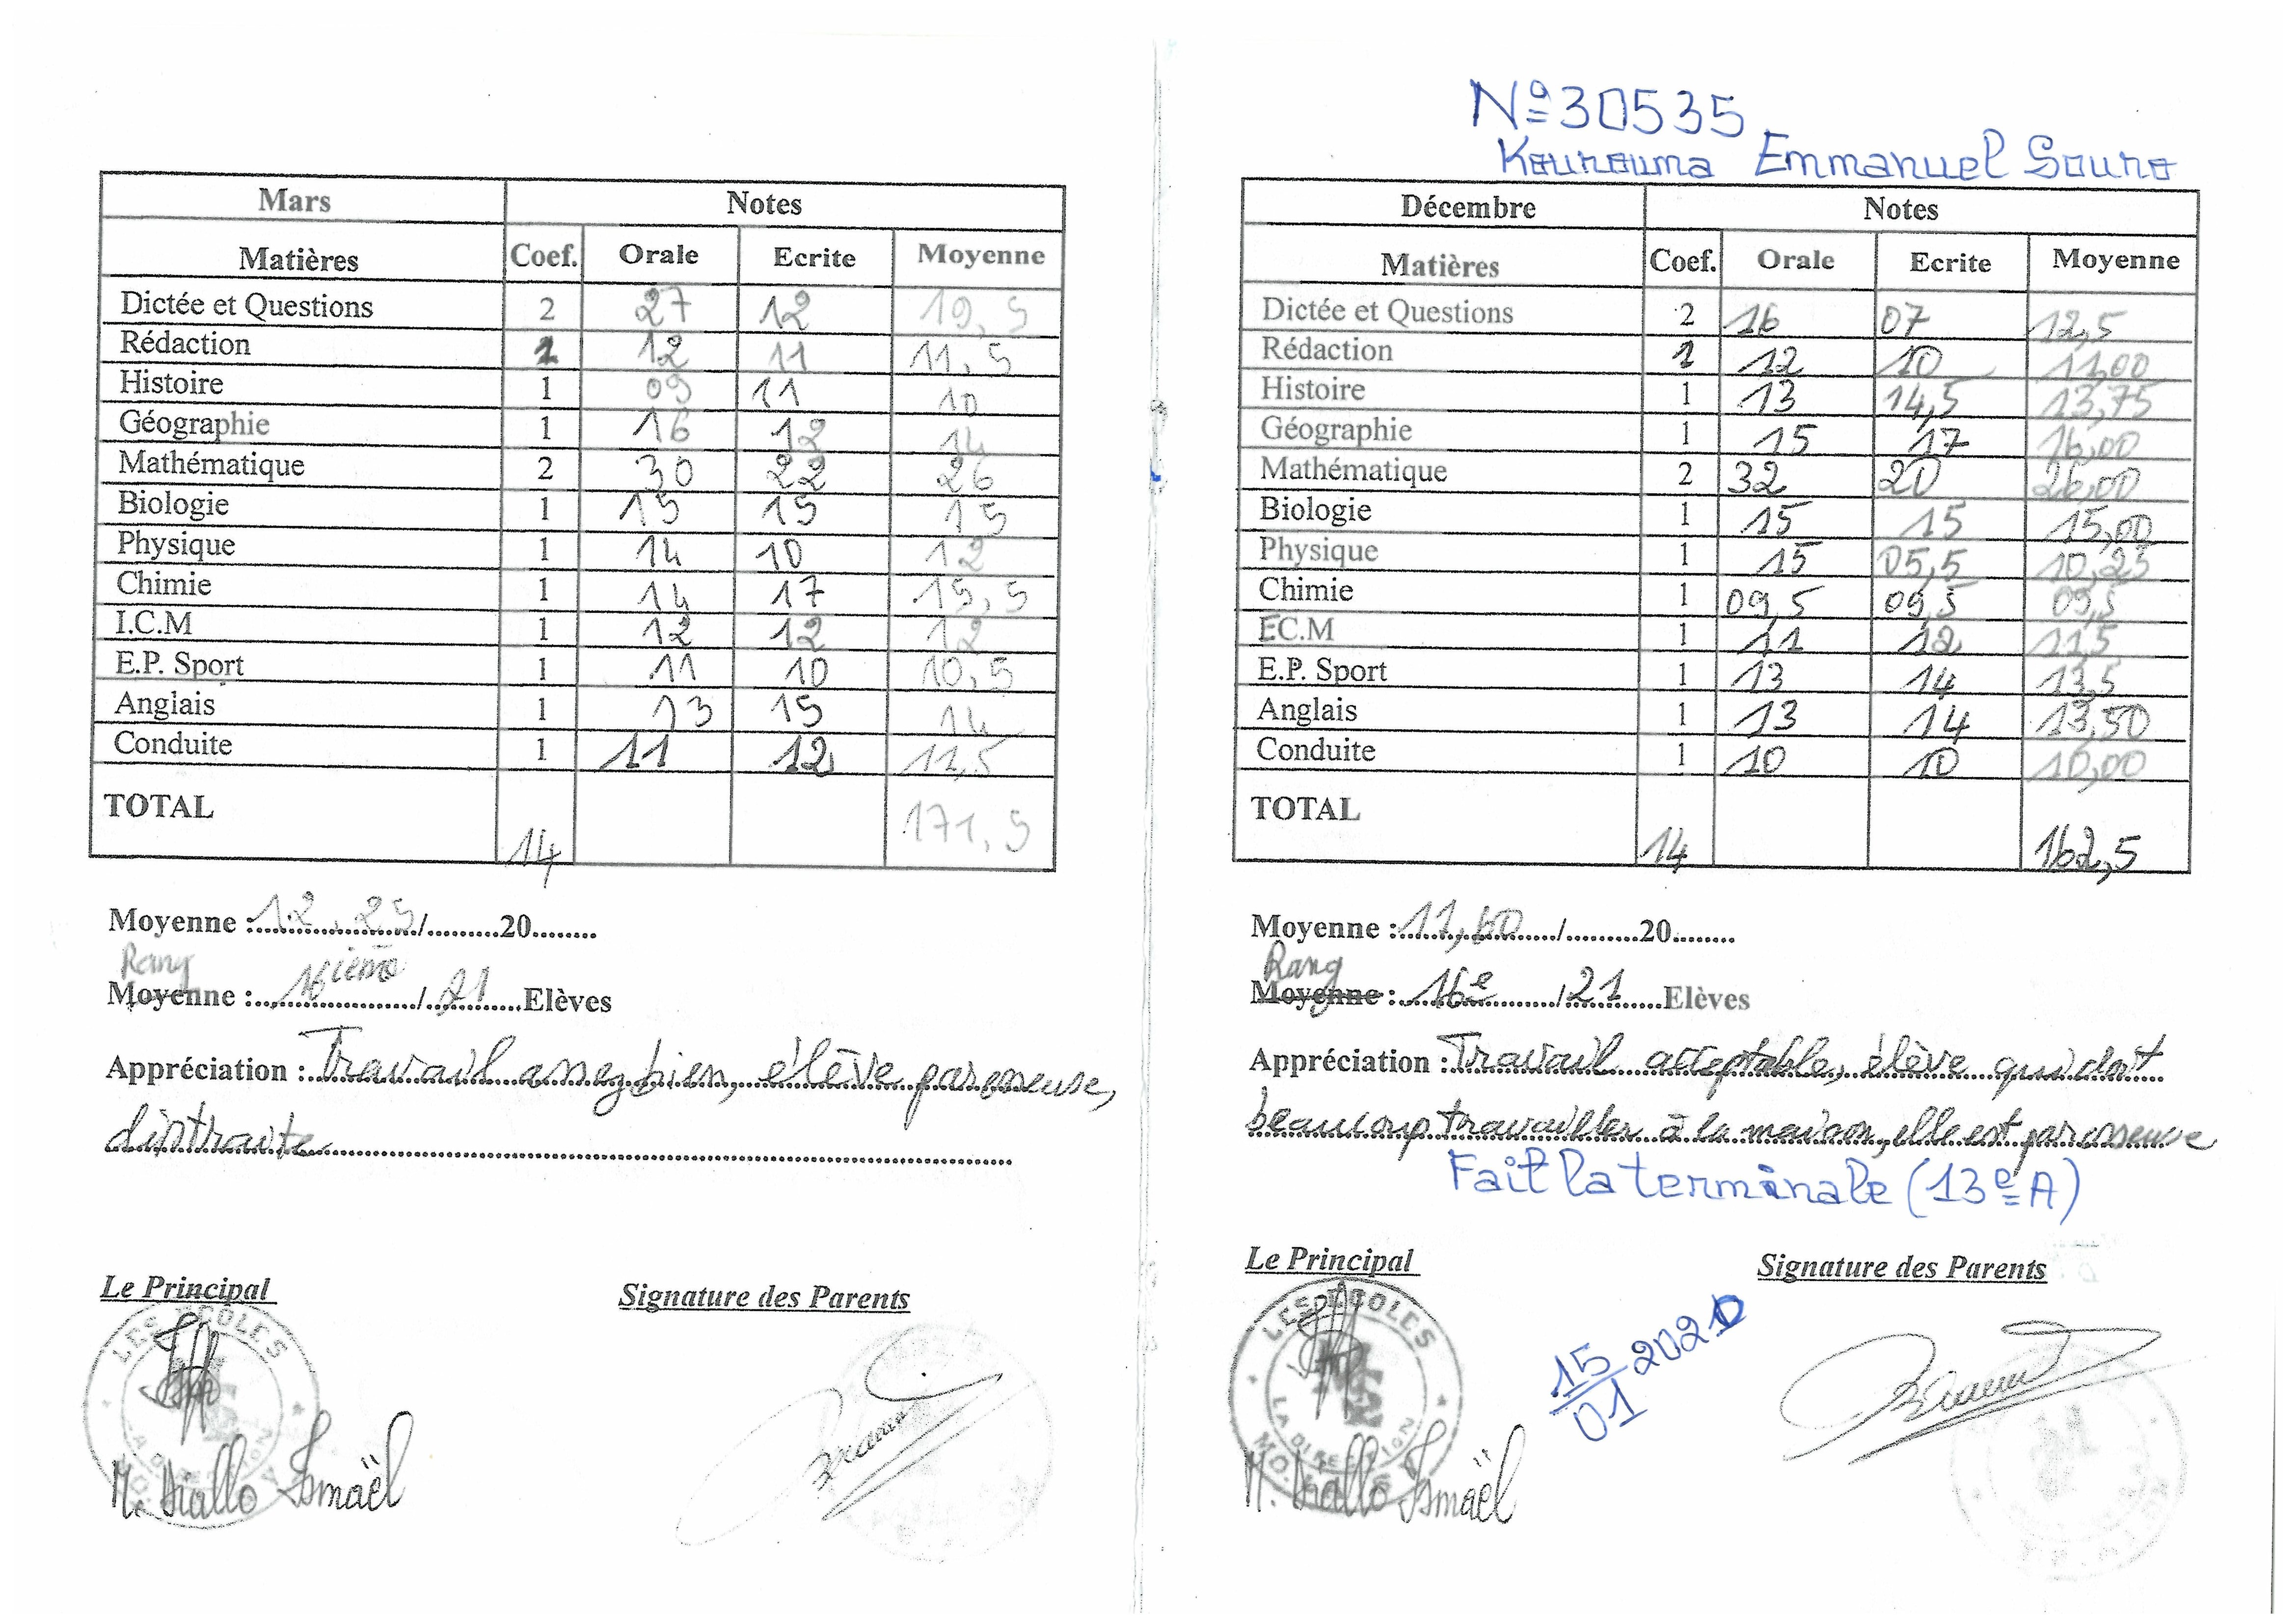 Mars Notes
Matières Coef. Orale Ecrite Moyenne
Dictée et Questions 2 27 12 19,5
Rédaction 1 12 11 11,5
Histoire 1 09 11 10
Géographie 1 16 12 14
Mathématique 2 30 22 26
Biologie 1 15 15 15
Physique 1 14 10 12
Chimie 1 14 17 15,5
I.C.M 1 12 12 12
E.P. Sport 1 11 10 10,5
Anglais 1 13 15 14
Conduite 1 11 12 11,5
TOTAL 14 171,5
Moyenne : 12,25 / 20
Rang
Moyenne : 16ième / 21 Elèves
Appréciation : Travail assez bien, élève paresseuse,
distraite
Le Principal
Signature des Parents
LES ECOLES
LA DIRECTION
M. Diallo Ismaël
N° 30535
Kourouma Emmanuel Souro
Décembre Notes
Matières Coef. Orale Ecrite Moyenne
Dictée et Questions 2 16 07 12,5
Rédaction 1 12 10 11,00
Histoire 1 13 14,5 13,75
Géographie 1 15 17 16,00
Mathématique 2 32 20 26,00
Biologie 1 15 15 15,00
Physique 1 15 05,5 10,25
Chimie 1 09,5 09,5 09,5
EC.M 1 11 12 11,5
E.P. Sport 1 13 14 13,5
Anglais 1 13 14 13,50
Conduite 1 10 10 10,00
TOTAL 14 162,5
Moyenne : 11,60 / 20
Rang
Moyenne : 16e / 21 Elèves
Appréciation : Travail acceptable, élève qui doit
beaucoup travailler à la maison, elle est paresseuse
Fait la terminale (13e A)
Le Principal
Signature des Parents
LES ECOLES
LA DIRECTION
15/01 2020
M. Diallo Ismaël